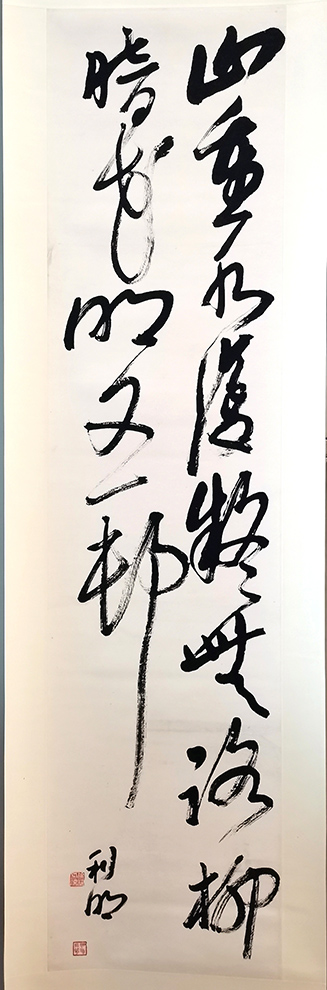 山重水复疑无路柳
暗花明又一邨
利明